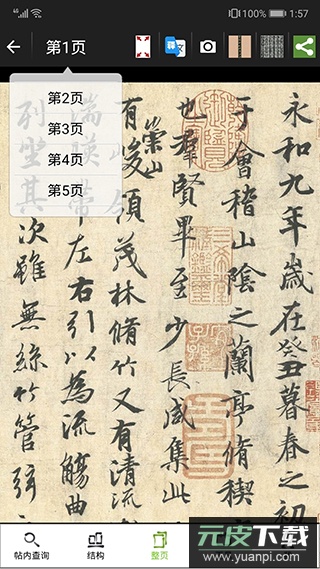 4G 100% 1:57
第1页
第2页
第3页
第4页
第5页
永和九年歲在癸丑暮春之初
于會稽山陰之蘭亭脩稧
也羣賢畢至少長咸集此
有崇山峻領茂林脩竹又有清流
湍暎帶左右引以為流觴曲
列坐其次雖無絲竹管弦
帖内查询
结构
整页
元皮下载
www.yuanpi.com